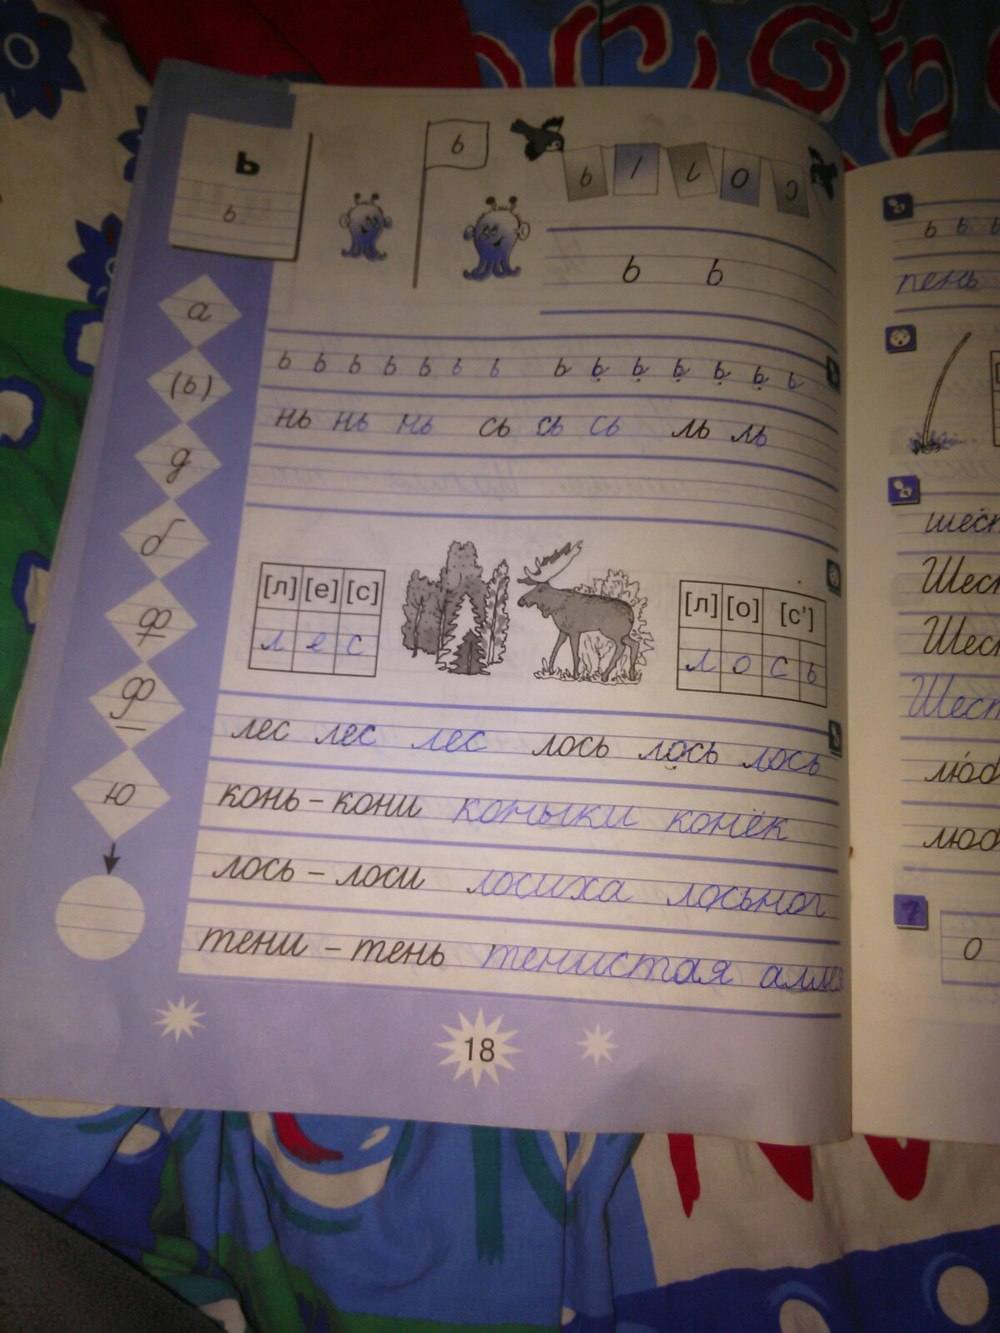 ь
ь
ь
ь l л о с
ь ь
а
(ь)
д
б
ф
ф
ю
ь ь ь ь ь ь ь ь ь ь ь ь ь ь
нь нь нь сь сь сь ль ль
[л] [е] [с]
л е с
[л] [о] [с']
л о с ь
лес лес лес лось лось лось
конь – кони коныки конёк
лось – лоси лосиха
тени – тень тенистая
18
ь ь ь
пень
Шес
Шес
люб
?
о